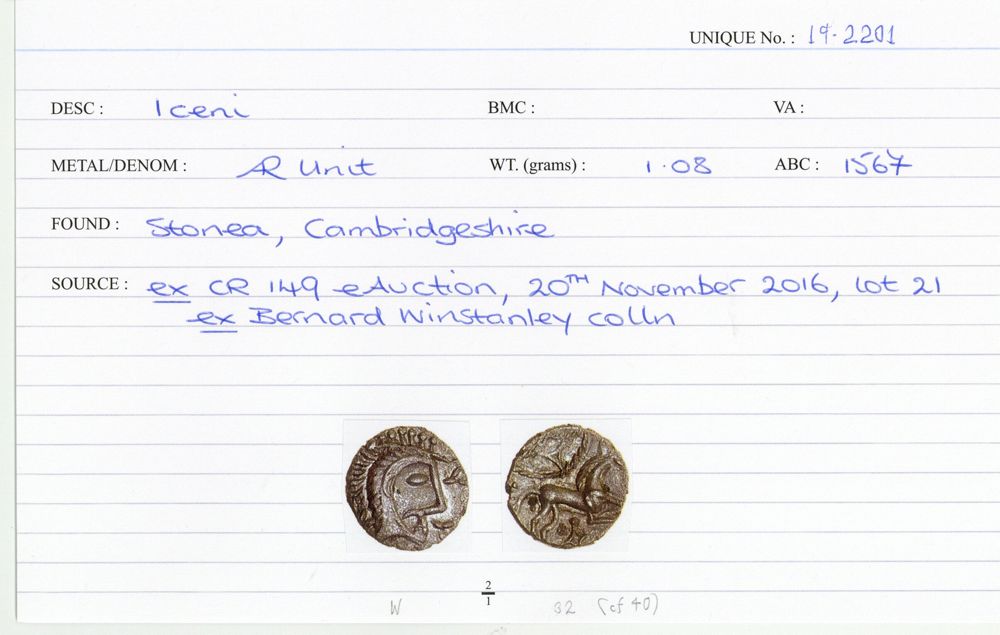 UNIQUE No. : 19·2201
DESC : Iceni BMC : VA :
METAL/DENOM : AR Unit WT. (grams) : 1·08 ABC : 1567
FOUND : Stonea, Cambridgeshire
SOURCE : ex CR 149 eAuction, 20TH November 2016, lot 21
ex Bernard Winstanley colln
2
1
W 32 (cf 40)